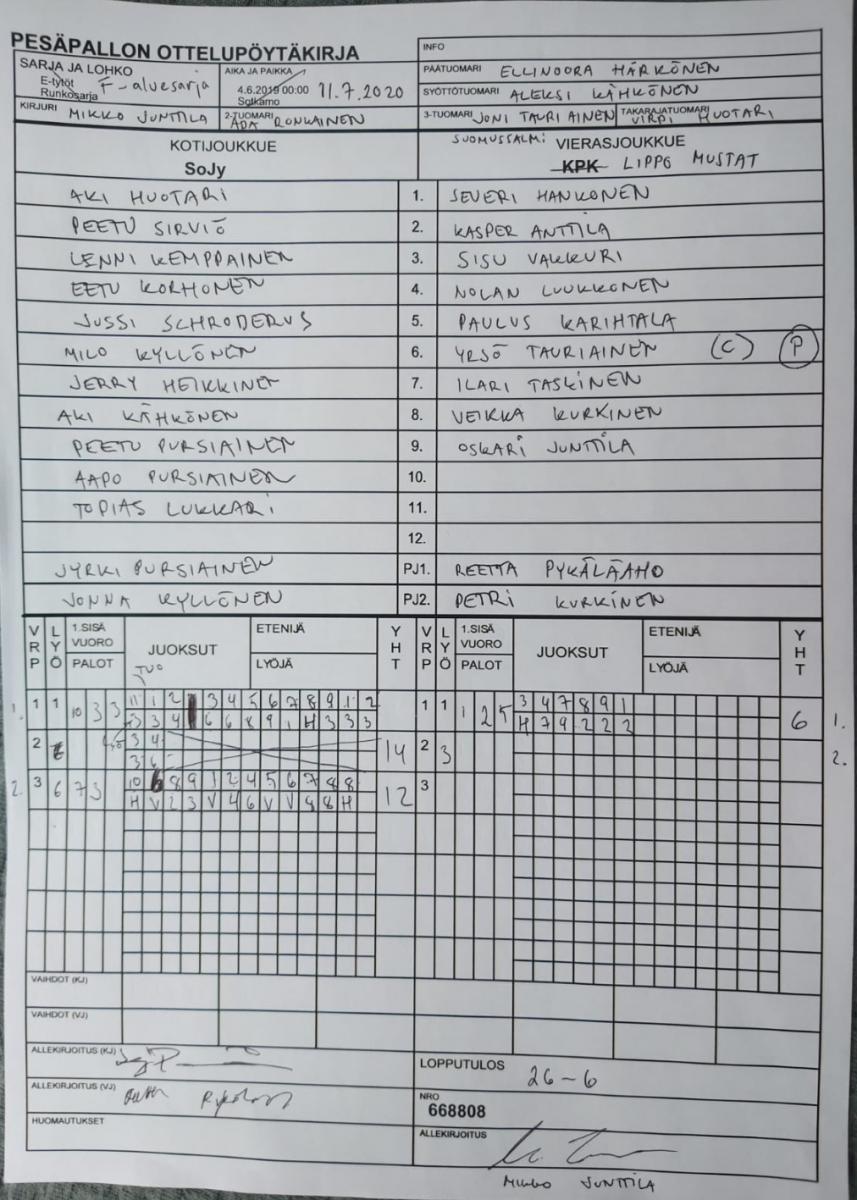 PESÄPALLON OTTELUPÖYTÄKIRJA
INFO
SARJA JA LOHKO
E-tytöt
Runkosarja
F-aluesarja
AIKA JA PAIKKA
4.6.2019 00:00
Sotkamo
11.7.2020
PÄÄTUOMARI ELLINOORA HÄRKÖNEN
SYÖTTÖTUOMARI ALEKSI KÄHKÖNEN
KIRJURI MIKKO JUNTTILA
2-TUOMARI ADA RONKAINEN
3-TUOMARI JONI TAURIAINEN
TAKARAJATUOMARI VIRPI HUOTARI
KOTIJOUKKUE
SoJy
SUOMUSSALMI VIERASJOUKKUE
KPK LIPPO MUSTAT
AKI HUOTARI 1. SEVERI HANKONEN
PEETU SIRVIÖ 2. KASPER ANTTILA
LENNI KEMPPAINEN 3. SISU VAKKURI
EETU KORHONEN 4. NOLAN LUUKKONEN
JUSSI SCHRODERUS 5. PAULUS KARIHTALA
MILO KYLLÖNEN 6. YRJÖ TAURIAINEN (C) P
JERRY HEIKKINEN 7. ILARI TASKINEN
AKI KÄHKÖNEN 8. VEIKKA KURKINEN
PEETU PURSIAINEN 9. OSKARI JUNTTILA
AAPO PURSIAINEN 10.
TOPIAS LUKKARI 11.
12.
JYRKI PURSIAINEN PJ1. REETTA PYKÄLÄAHO
JONNA KYLLÖNEN PJ2. PETRI KURKINEN
VRP LYÖ 1.SISÄ VUORO PALOT JUOKSUT ETENIJÄ LYÖJÄ YHT VRP LYÖ 1.SISÄ VUORO PALOT JUOKSUT ETENIJÄ LYÖJÄ YHT
TUO
1. 1 1 10 3 3 11 1 2 3 4 5 6 7 8 9 1 2 1 1 1 2 5 3 4 7 8 9 1 6 1.
3 3 4 6 6 8 9 1 H 3 3 3 H 7 9 2 2 2
2 3 4 14 2 3 2.
3 6
2. 3 6 7 3 10 6 8 9 1 2 4 5 6 7 8 8 12 3
H V 2 3 V 4 6 V V 8 8 H
VAIHDOT (KJ)
VAIHDOT (VJ)
ALLEKIRJOITUS (KJ)
LOPPUTULOS 26-6
ALLEKIRJOITUS (VJ)
NRO
668808
HUOMAUTUKSET
ALLEKIRJOITUS
MIKKO JUNTTILA